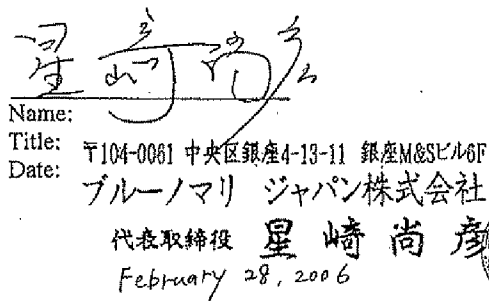 星崎尚彦
Name:
Title: 〒104-0061 中央区銀座4-13-11 銀座M&Sビル6F
Date: ブルーノマリ ジャパン株式会社
代表取締役 星崎尚彦
February 28, 2006